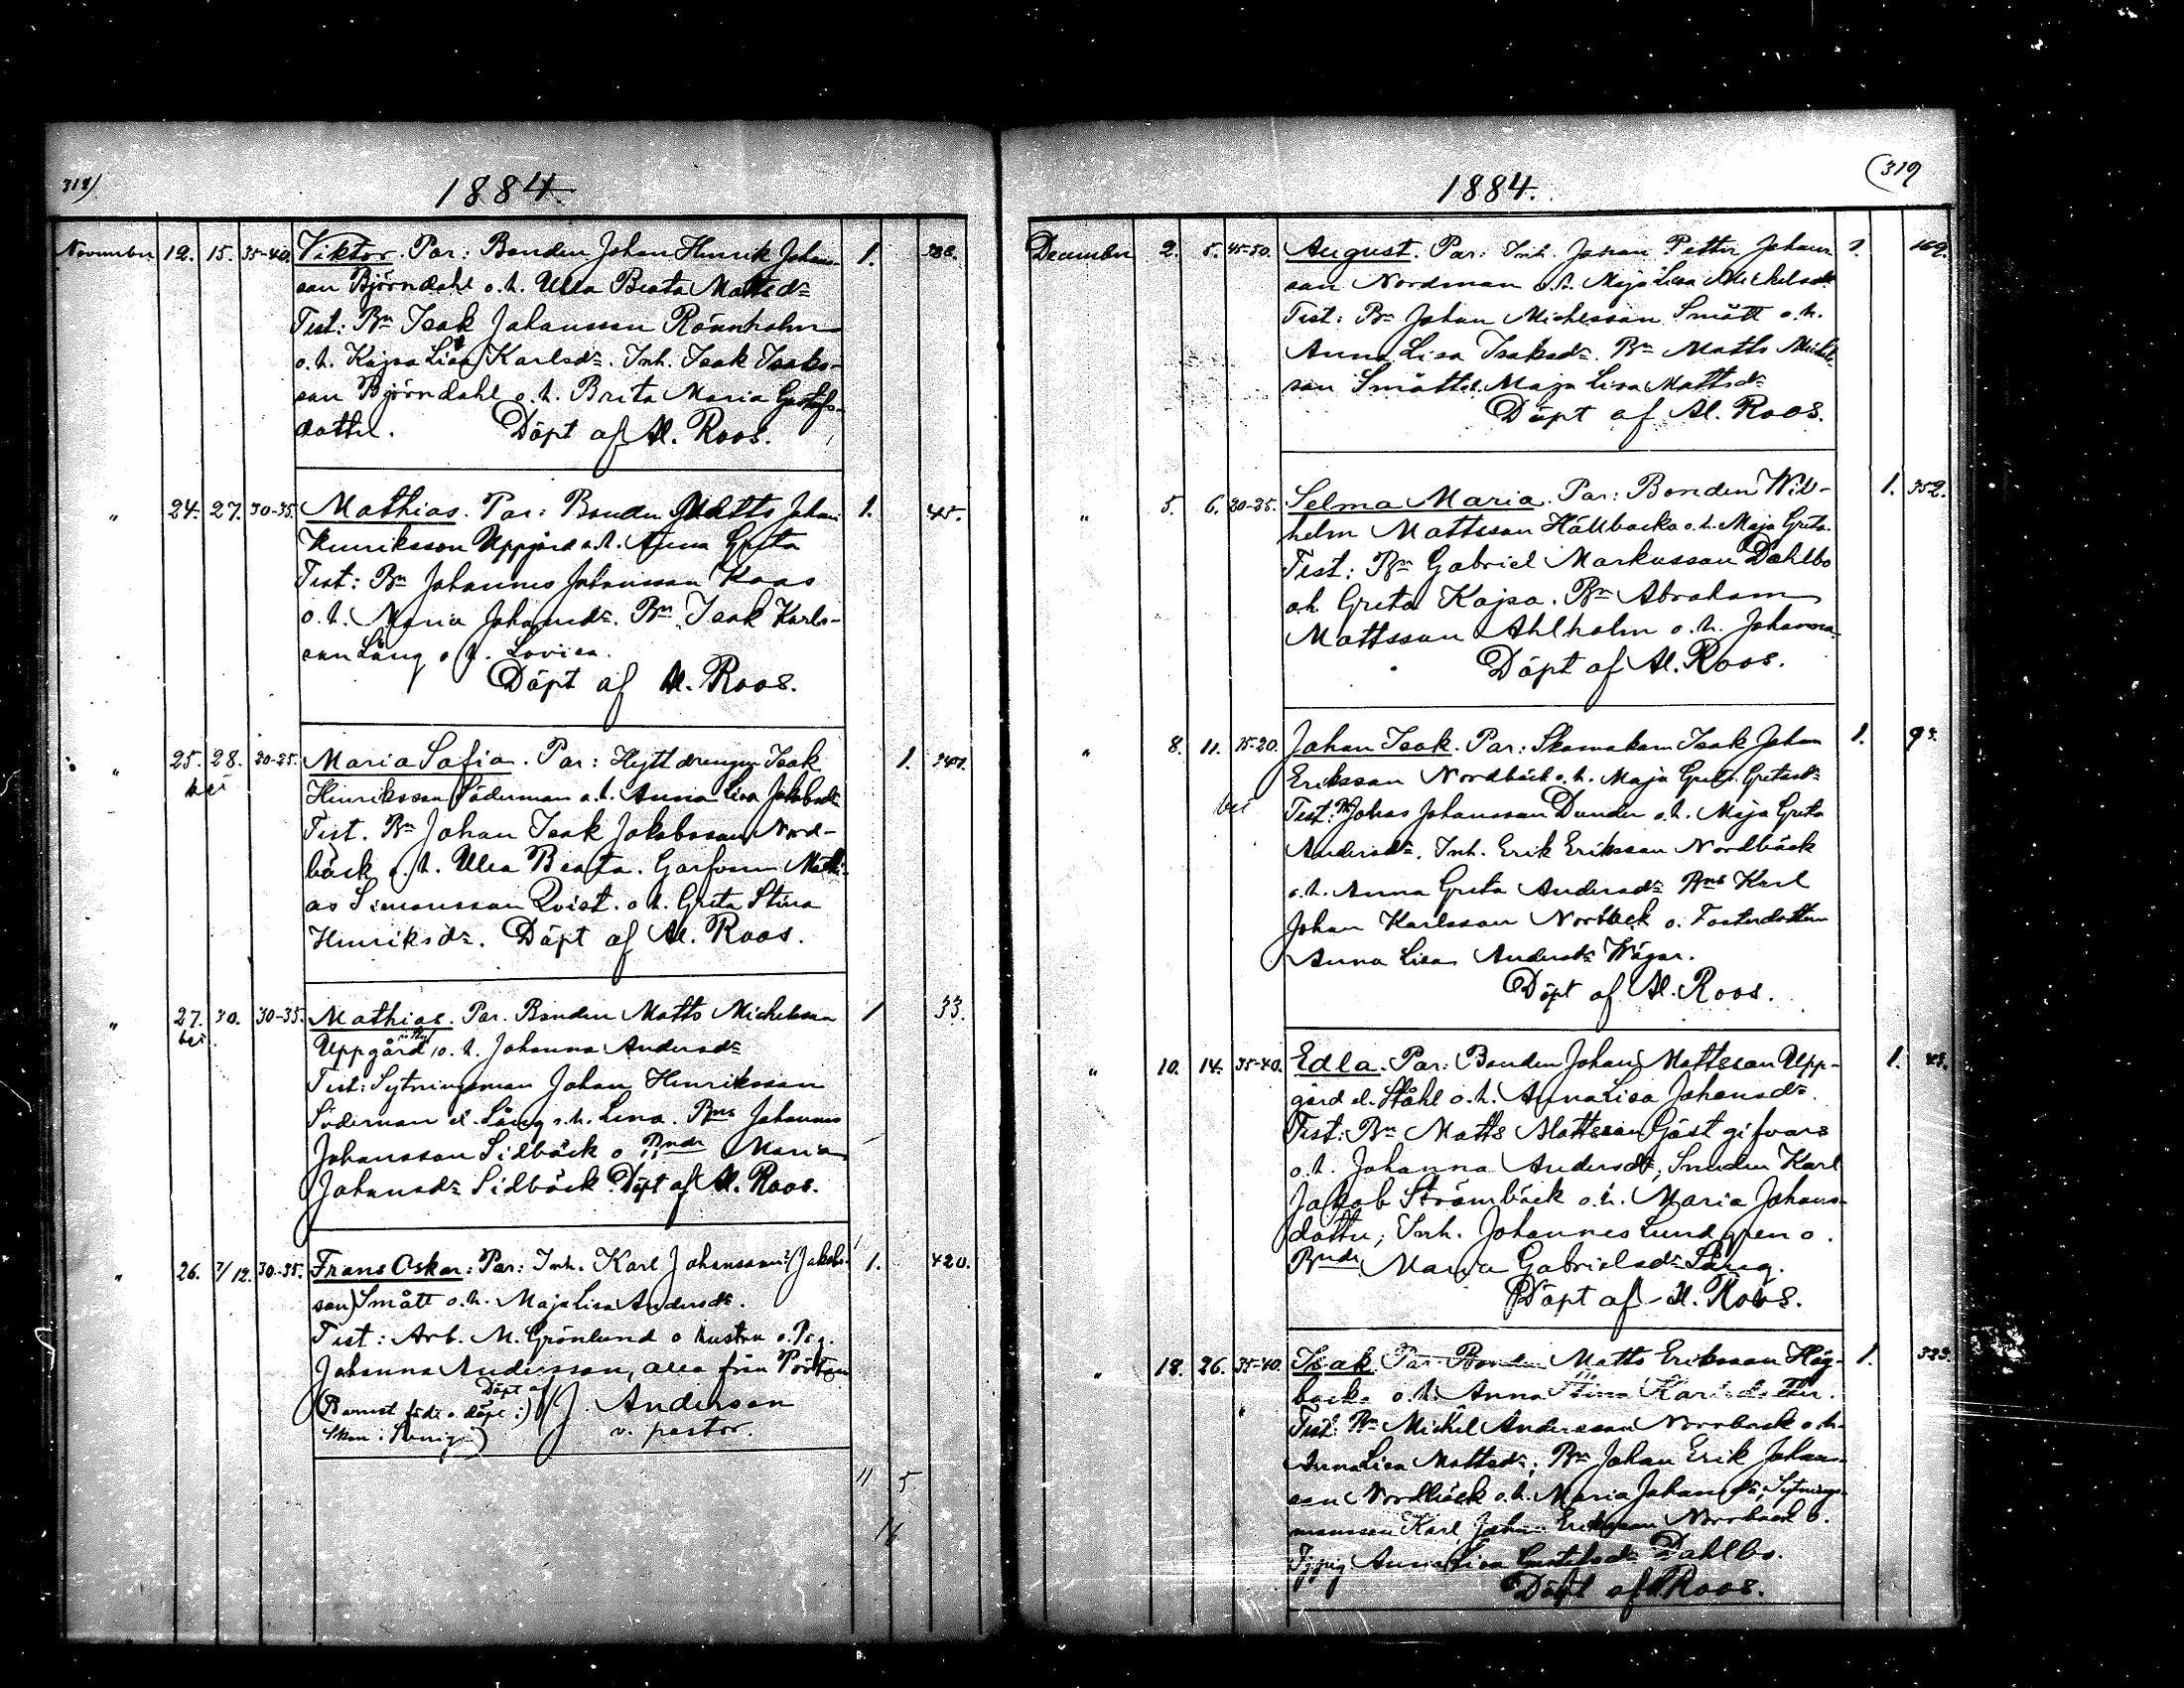 318)
1884.
November 12. 15. 35-40. Viktor. Par: Bonden Johan Henrik Johans- 1. 388.
son Björndahl o. h. Ulla Beata Mattsdr
Test: Bn Isak Johansson Rönnholm
o. h. Kajsa Lisa Karlsdr. Inh. Isak Isaks-
son Björndahl o. h. Brita Maria Gustafs-
dotter. Döpt af Al. Roos.
" 24. 27. 30-35. Mathias. Par: Bonden Matts Johan 1. 45.
Henriksson Uppgård o. h. Anna Greta
Test: Bn Johannes Johansson Kaas
o. h. Maria Johansdr. Bn Isak Karls-
son Lång o h. Lovisa.
Döpt af Al. Roos.
" 25. 28. 20-25. Maria Sofia. Par: Hyttdrengen Isak 1.
Henriksson Söderman o. h. Anna Lisa Jakobsdr
Test. Bn Johan Isak Jakobsson Nord-
bäck o. h. Ulla Beata. Garfvaren Mathi-
as Simonsson Qvist. o h. Greta Stina
Henriksdr. Döpt af Al. Roos.
" 27. 30. 30-35. Mathias. Par. Bonden Matts Michelsson 1 33.
Uppgård o. h. Johanna Andersdr
Test: Sytningsman Johan Henriksson
Söderman el. Lång o. h. Lena. Bns Johannes
Johansson Sidbäck o Bndr Maria
Johansdr Sidbäck. Döpt af Al. Roos.
" 26. 7/12. 30-35. Frans Oskar: Par: Inh. Karl Johansson (Jakobs- 1. 420.
son) Smått o. h. Maja Lisa Andersdr.
Test: Arb. M. Grönlund o hustru o. Pig.
Johanna Andersson, alla från
(Barnet född o. döpt i Döpt af J. Anderson
Sken i Sverige) v. pastor.
11 5
16
(319
1884.
December 2. 5. 45-50. August. Par: Inh. Johan Petter Johans- 1. 169.
son Nordman o. h. Maja Lisa Michelsdr
Test: Bn Johan Michelsson Smått o. h.
Anna Lisa Isaksdr. Bn Matts Michels-
son Smått o. h. Maja Lisa Mattsdr
Döpt af Al. Roos.
" 5. 6. 20-25. Selma Maria. Par: Bonden Wil- 1. 352.
helm Mattsson Hällbacka o. h. Maja Greta.
Test: Bn Gabriel Markusson Dahlbo
oh Greta Kajsa. Bn Abraham
Mattsson Ahlholm o. h. Johanna.
Döpt af Al. Roos.
" 8. 11. 15-20. Johan Isak. Par: Skomakaren Isak Johan 1. 93.
Eriksson Nordbäck o. h. Maja Greta
Test: Bn Johan Johansson Dunder o. h. Maja Greta
Andersdr. Inh. Erik Eriksson Nordbäck
o. h. Anna Greta Andersdr Bns Karl
Johan Karlsson Norrbäck o. Fosterdottern
Anna Lisa Andersdr Wägar.
Döpt af Al. Roos.
" 10. 14. 35-40. Edla. Par: Bonden Johan Mattsson Upp- 1. 45.
gård el. Ståhl o. h. Anna Lisa Johansdr.
Test: Bn Matts Mattsson Gästgifvars
o. h. Johanna Andersdr; Smeden Karl
Jakob Strömbäck o. h. Maria Johans-
dotter; Inh. Johannes Lundgren o.
Bndr Maria Gabrielsdr Lång.
Döpt af Al. Roos.
" 18. 26. 35-40. Isak Par Bonden Matts Eriksson Hög- 1. 323.
backa o. h. Anna Stina Karlsdotter.
Test: Bn Mickel Andersson Norrback o. h.
Anna Lisa Mattsdr; Bn Johan Erik Johans-
son Nordbäck o. h. Maria Johansdr; Sytnings-
mansson Karl Johan Eriksson Norrback o.
Anna Lisa Gustafsdr Dahlbo.
Döpt af Roos.